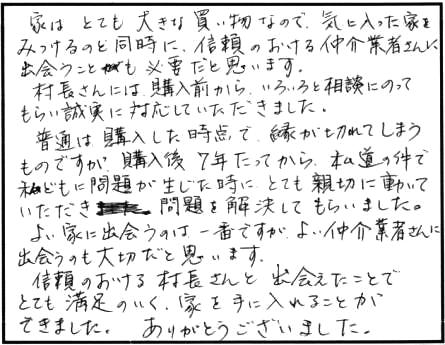 家は とても 大きな 買い物なので、気に入った家を
みつけるのと同時に、信頼のおける仲介業者さんに
出会うことも必要だと思います。
村長さんには、購入前から、いろいろと相談にのって
もらい誠実に対応していただきました。
普通は、購入した時点で、縁が切れてしまう
ものですが、購入後 7年たってから、私道の件で
私どもに問題が生じた時に、とても親切に動いて
いただき 問題を解決してもらいました。
よい家に出会うのは一番ですが、よい仲介業者さんに
出会うのも大切だと思います。
信頼のおける村長さんと出会えたことで
とても満足のいく、家を手に入れることが
できました。 ありがとうございました。